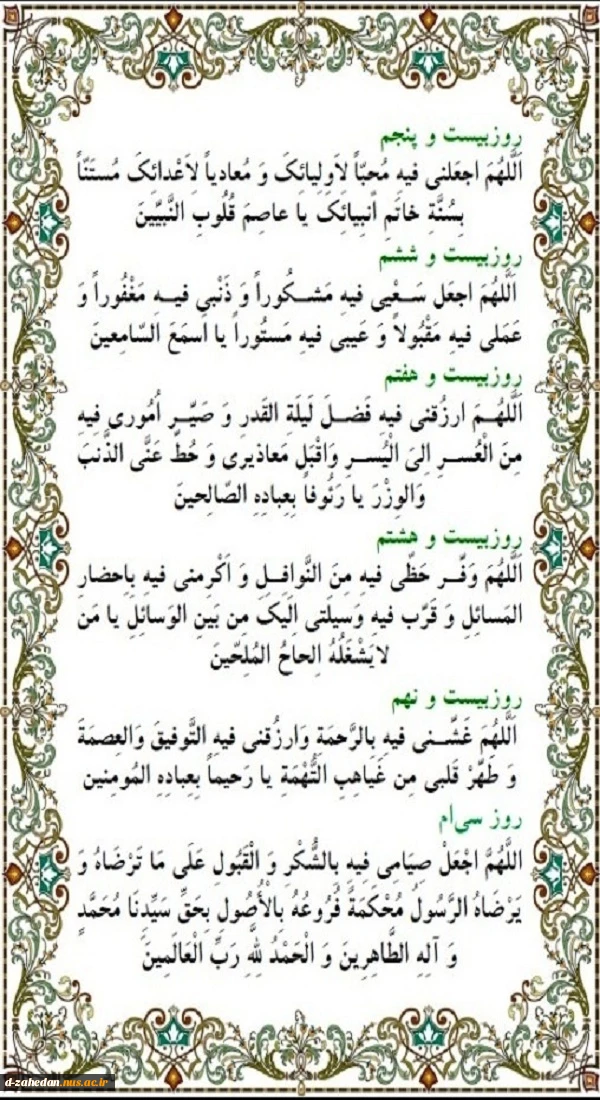 روزبیست و پنجم
اَللهُمَ اجعَلنی فیهِ مُحبّاً لاَولِیائِکَ وَ مُعادیاً لاَعْدائِکَ مُستَنّاً
بِسُنَّةِ خاتَمِ أنبِیائِکَ یا عاصِمَ قُلُوبِ النَّبیِّینَ
روزبیست و ششم
اَللهُمَ اجعَل سَعْیی فیهِ مَشکُوراً وَ ذَنْبی فیهِ مَغْفُوراً وَ
عَمَلی فیهِ مَقْبُولاً وَ عَیبی فیهِ مَستُوراً یا اَسمَعَ السّامِعینَ
روزبیست و هفتم
اَللهُمَ ارزُقنی فیهِ فَضلَ لَیلَةِ القَدرِ وَ صَیِّر اُمُوری فیهِ
مِنَ الْعُسرِ اِلیَ الْیُسرِ وَاقْبَل مَعاذیری وَ حُطَّ عَنَّی الذَّنبَ
وَالوِزْرَ یا رَئُوفاً بِعبادِهِ الصّالِحینَ
روزبیست و هشتم
اَللهُمَ وَفِّر حَظّی فیهِ مِنَ النَّوافِلِ وَ اَکْرِمنی فیهِ بِاِحضارِ
المَسائلِ وَ قَرِّب فیهِ وَسیلَتی اِلَیکَ مِن بَینِ الوَسائلِ یا مَن
لایَشْغَلُهُ اِلحاحُ المُلِحّینَ
روزبیست و نهم
اَللهُمَ غَشِّنی فیهِ بِالرَّحمَةِ وَارزُقنی فیهِ التَّوفیقَ وَالعِصمَةَ
وَ طَهِّرْ قَلبی مِن غَیاهِبِ التُّهْمَةِ یا رَحیماً بِعِبادِهِ المُومِنین
روز سی‌ام
اللَّهُمَّ اجْعَلْ صِیَامِی فِیهِ بِالشُّکْرِ وَ الْقَبُولِ عَلَی مَا تَرْضَاهُ وَ
یَرْضَاهُ الرَّسُولُ مُحْکَمَةً فُرُوعُهُ بِالْأُصُولِ بِحَقِّ سَیِّدِنَا مُحَمَّدٍ
وَ آلِهِ الطَّاهِرِینَ وَ الْحَمْدُ لِلَّهِ رَبِّ الْعَالَمِینَ
d-zahedan.nus.ac.ir